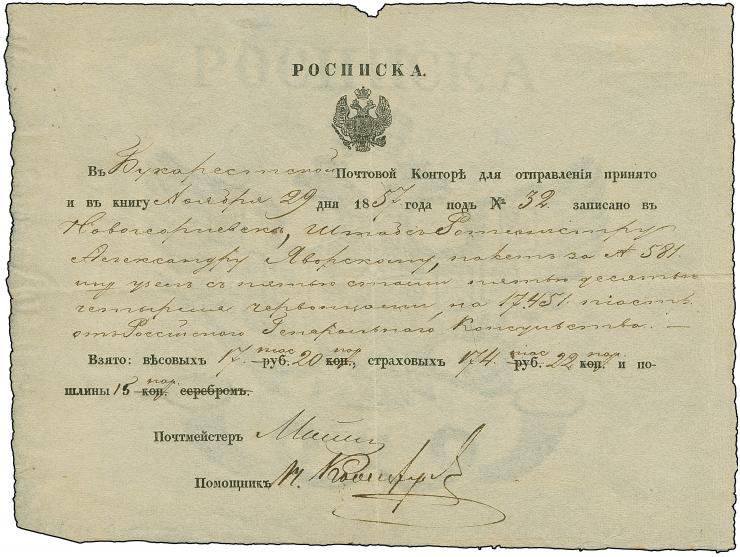 РОСПИСКА.
Въ Бухарестской Почтовой Конторѣ для отправленія принято
и въ книгу Ноября 29 дня 1857 года подъ № 32. записано въ
Новогеоргіевскъ, Штабсъ Ротмистру
Александру Яворскому, пакетъ за № 581.
узелъ съ пятью стами пятью десятью
четырмя червонцами, на 17451. піастъ.
отъ Россійского Генеральнаго Консульства. —
Взято: вѣсовыхъ 17. піас руб. 20 пар. коп., страховыхъ 174. піас руб. 22 пар. коп. и по-
шлины 15 пар. коп. серебромъ.
Почтмейстеръ
Помощникъ